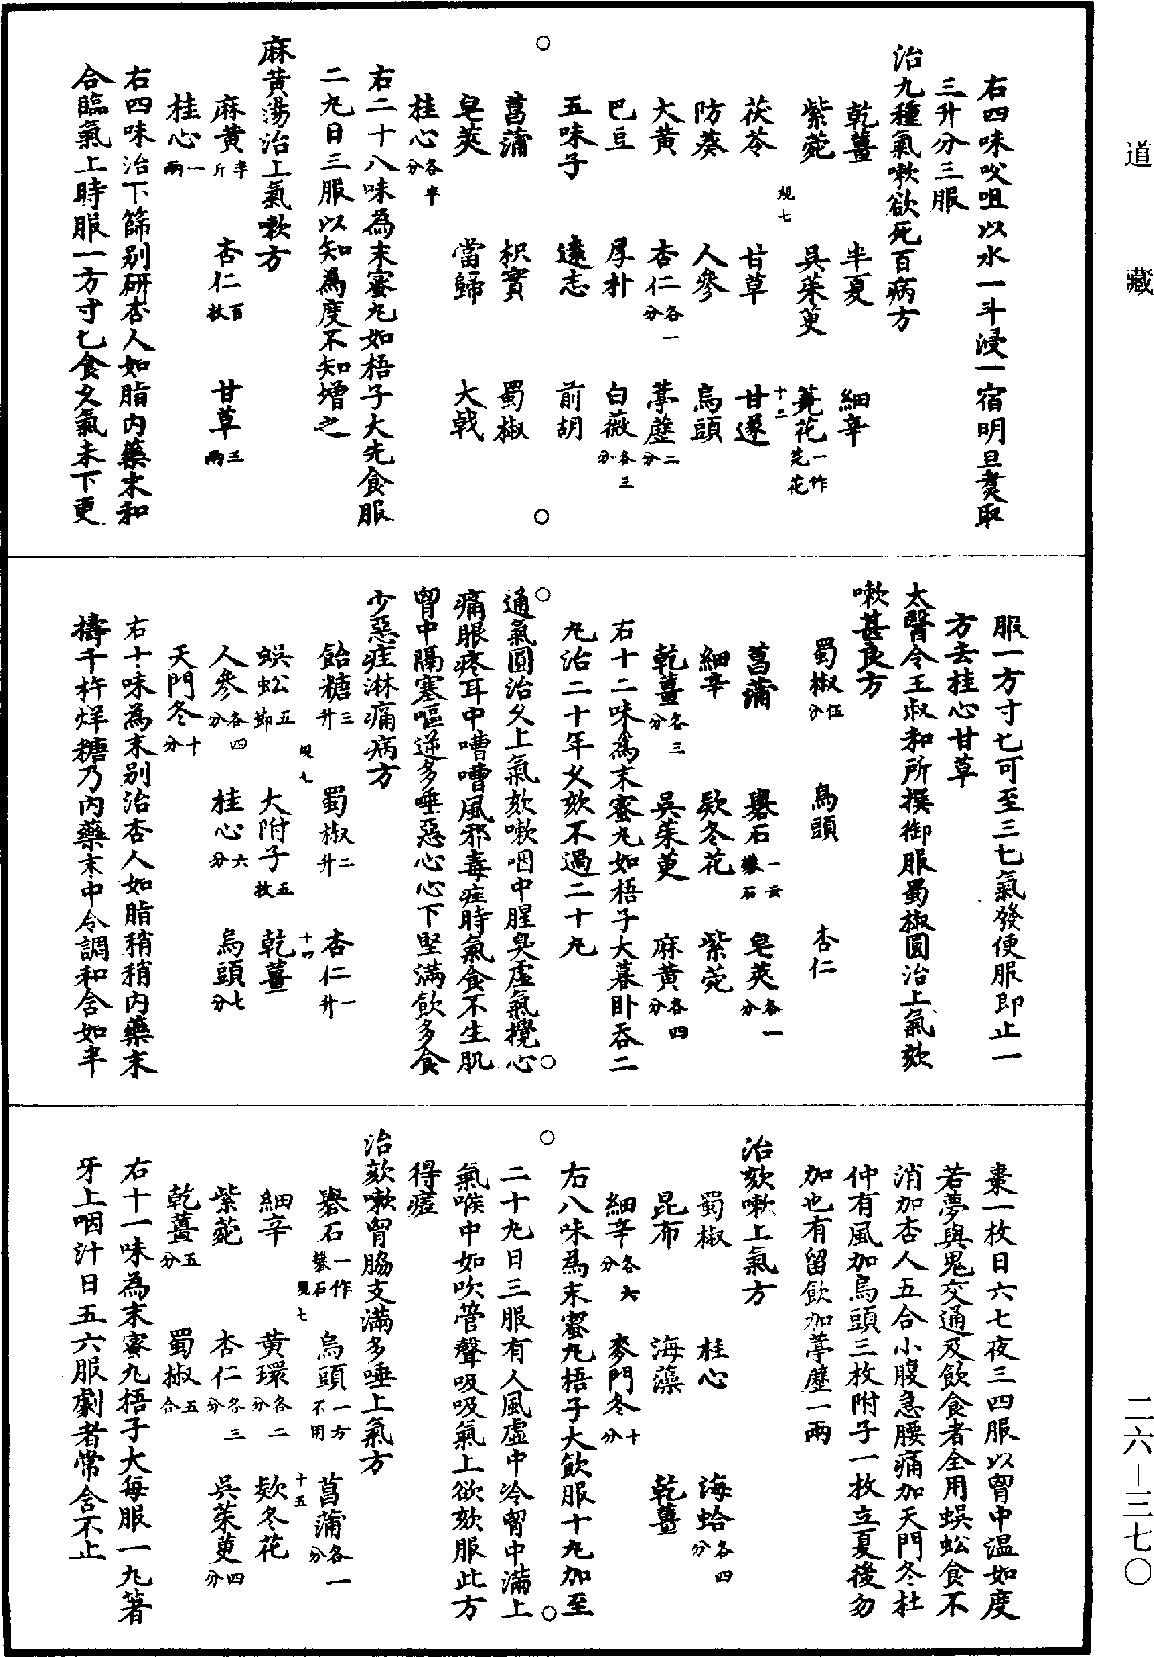 道藏
右四味㕮咀以水一斗浸一宿明旦煑取
三升分三服
治九種氣嗽欲死百病方
乾薑 半夏 細辛
紫菀 吳茱萸 蕘花一作芫花
規七 十二
茯苓 甘草 甘遂
防葵 人參 烏頭
大黃 杏仁各一分 葶藶二分
巴豆 厚朴 白薇各三分
五味子 遠志 前胡
菖蒲 枳實 蜀椒
皂莢 當歸 大戟
桂心各半分
右二十八味為末蜜丸如梧子大先食服
二丸日三服以知為度不知增之
麻黃湯治上氣嗽方
麻黃半斤 杏仁百枚 甘草三兩
桂心一兩
右四味治下篩別研杏人如脂內藥末和
合臨氣上時服一方寸匕食久氣未下更
服一方寸匕可至三七氣發便服即止一
方去桂心甘草
太醫令王叔和所撰御服蜀椒圓治上氣欬
嗽甚良方
蜀椒伍分 烏頭 杏仁
菖蒲 礜石一云礬石 皂莢各一分
細辛 欵冬花 紫菀
乾薑各三分 吳茱萸 麻黃各四分
右十二味為末蜜丸如梧子大暮卧吞二
丸治二十年久欬不過二十丸
通氣圓治久上氣欬嗽咽中腥臭虛氣攪心
痛眼疼耳中嘈嘈風邪毒疰時氣食不生肌
胷中隔塞嘔逆多唾惡心心下堅滿飲多食
少惡疰淋痛病方
飴糖三升 蜀椒二升 杏仁一升
規七 十四
蜈蚣五節 大附子五枚 乾薑
人參各四分 桂心六分 烏頭七分
天門冬十分
右十味為末別治杏人如脂稍稍內藥末
擣千杵烊糖乃內藥末中令調和含如半
棗一枚日六七夜三四服以胷中溫如度
若夢與鬼交通及飲食者全用蜈蚣食不
消加杏人五合小腹急腰痛加天門冬杜
仲有風加烏頭三枚附子一枚立夏後勿
加也有留飲加葶藶一兩
治欬嗽上氣方
蜀椒 桂心 海蛤各四分
昆布 海藻 乾薑
細辛各六分 麥門冬十分
右八味為末蜜丸梧子大飲服十丸加至
二十丸日三服有人風虛中冷胷中滿上
氣喉中如吹管聲吸吸氣上欲欬服此方
得瘥
治欬嗽胷脇支滿多唾上氣方
礜石一作礬石 烏頭一方不用 菖蒲各一分
規七 十五
細辛 黃環各二分 欵冬花
紫菀 杏仁各三分 吳茱萸四分
乾薑五分 蜀椒五合
右十一味為末蜜丸梧子大每服一丸著
牙上咽汁日五六服劇者常含不止
二六—三七〇